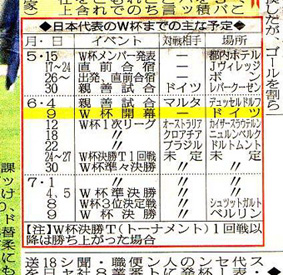 ◆日本代表のW杯までの主な予定◆
月・日 イベント 対戦相手 場所
5・15 W杯メンバー発表 ― 都内ホテル
17〜24 直前合宿 ― Jヴィレッジ
26〜 出発、直前合宿 ― ボン
30 親善試合 ドイツ レバークーゼン
6・4 親善試合 マルタ デュッセルドルフ
9 W杯開幕 ― ドイツ
12 W杯1次リーグ オーストラリア カイザースラウテルン
18 〃 クロアチア ニュルンベルク
22 〃 ブラジル ドルトムント
24〜27 W杯決勝T1回戦 未定 未定
30 W杯準々決勝 〃 〃
7・1 〃 〃 〃
4、5 W杯準決勝 〃 〃
8 W杯3位決定戦 〃 シュツットガルト
9 W杯決勝 〃 ベルリン
【注】W杯決勝T(トーナメント)1回戦以
降は勝ち上がった場合